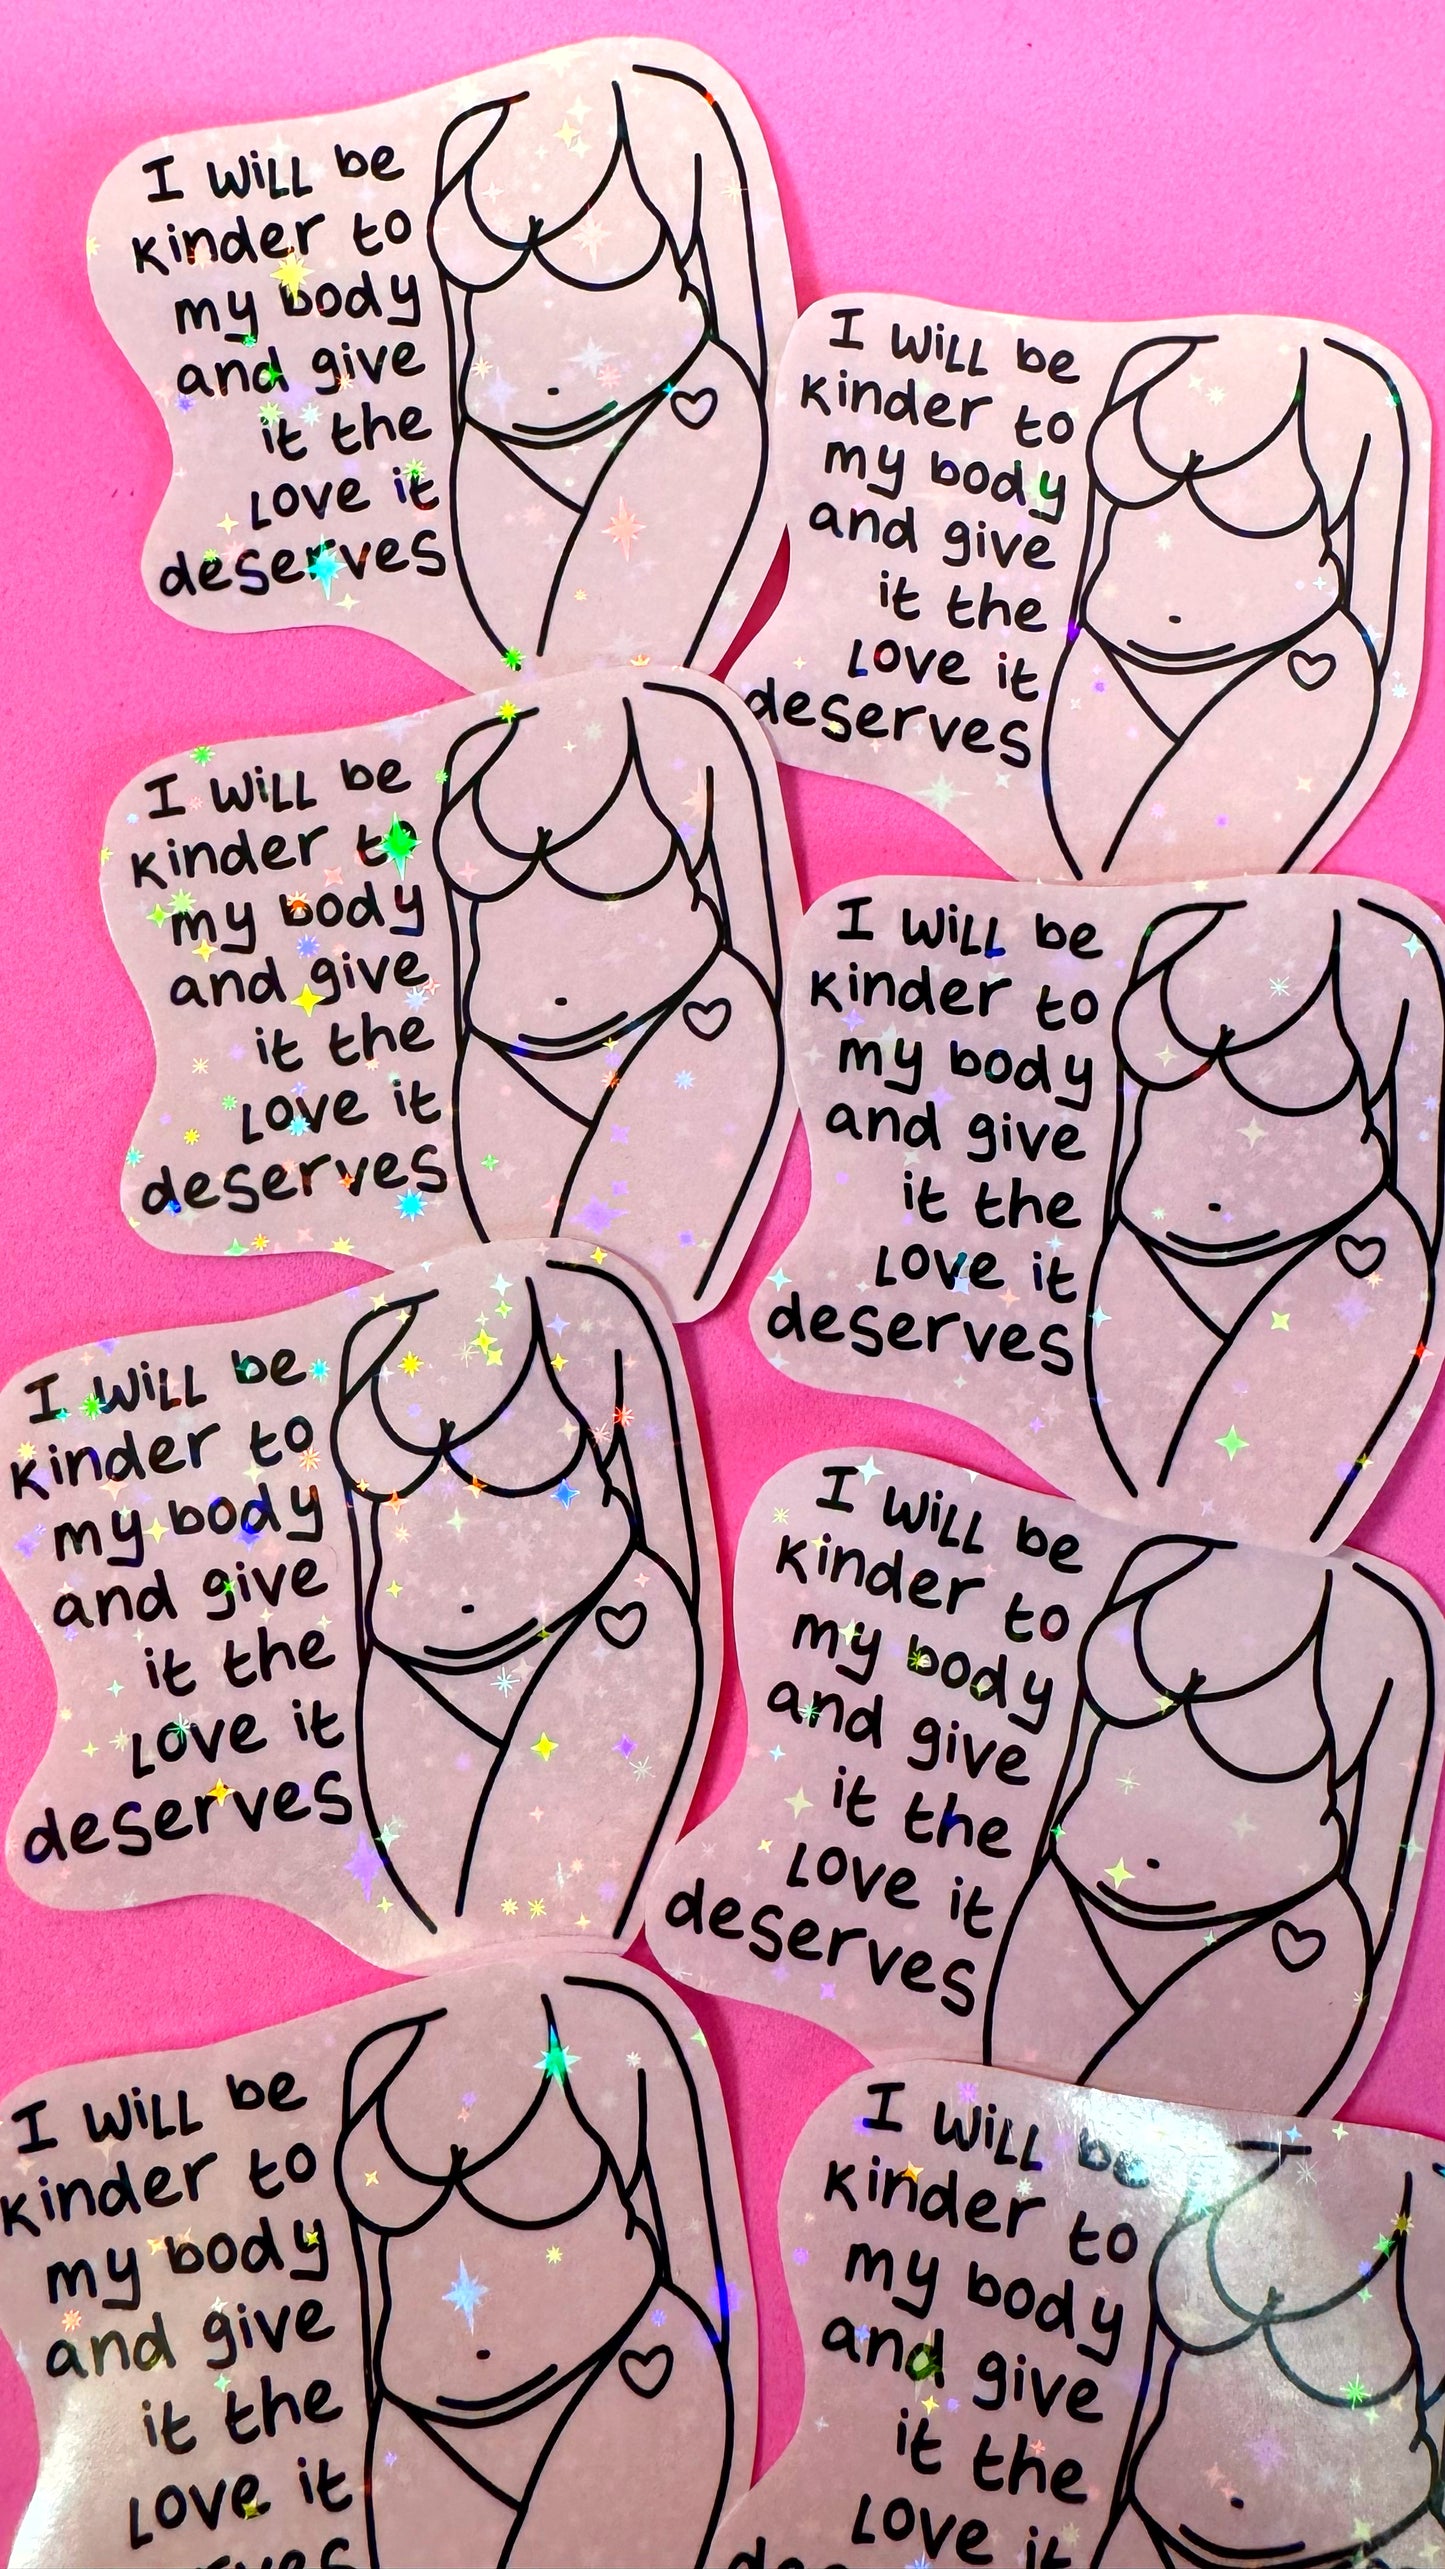 I will be
kinder to
my body
and give
it the
love it
deserves
I will be
kinder to
my body
and give
it the
love it
deserves
I will be
kinder to
my body
and give
it the
love it
deserves
I will be
kinder to
my body
and give
it the
love it
deserves
I will be
kinder to
my body
and give
it the
love it
deserves
I will be
kinder to
my body
and give
it the
love it
deserves
I will be
kinder to
my body
and give
it the
love it
I will be
kinder to
my body
and give
it the
love it